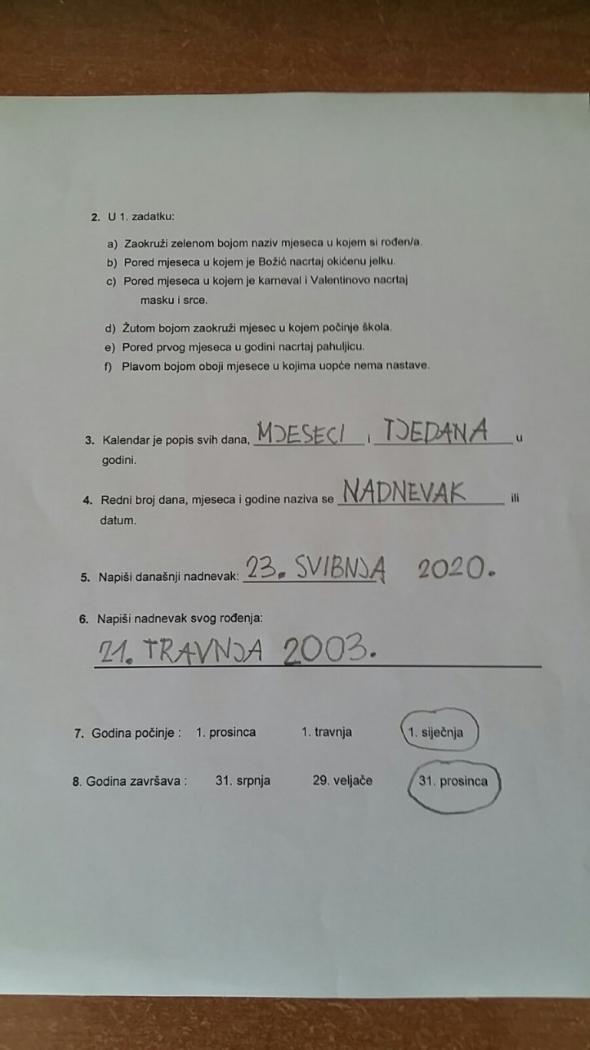 2. U 1. zadatku:
a) Zaokruži zelenom bojom naziv mjeseca u kojem si rođen/a.
b) Pored mjeseca u kojem je Božić nacrtaj okićenu jelku.
c) Pored mjeseca u kojem je karneval i Valentinovo nacrtaj
masku i srce.
d) Žutom bojom zaokruži mjesec u kojem počinje škola.
e) Pored prvog mjeseca u godini nacrtaj pahuljicu.
f) Plavom bojom oboji mjesece u kojima uopće nema nastave.
3. Kalendar je popis svih dana, MJESECI i TJEDANA u
godini.
4. Redni broj dana, mjeseca i godine naziva se NADNEVAK ili
datum.
5. Napiši današnji nadnevak: 23. SVIBNJA 2020.
6. Napiši nadnevak svog rođenja:
21. TRAVNJA 2003.
7. Godina počinje : 1. prosinca 1. travnja 1. siječnja
8. Godina završava : 31. srpnja 29. veljače 31. prosinca